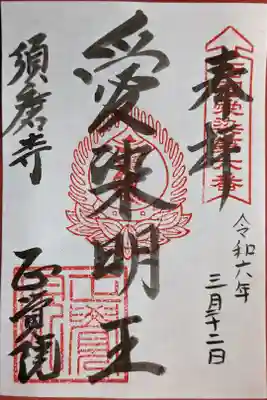 奉拝
令和六年
三月二十二日
愛染明王
須磨寺
正覚院